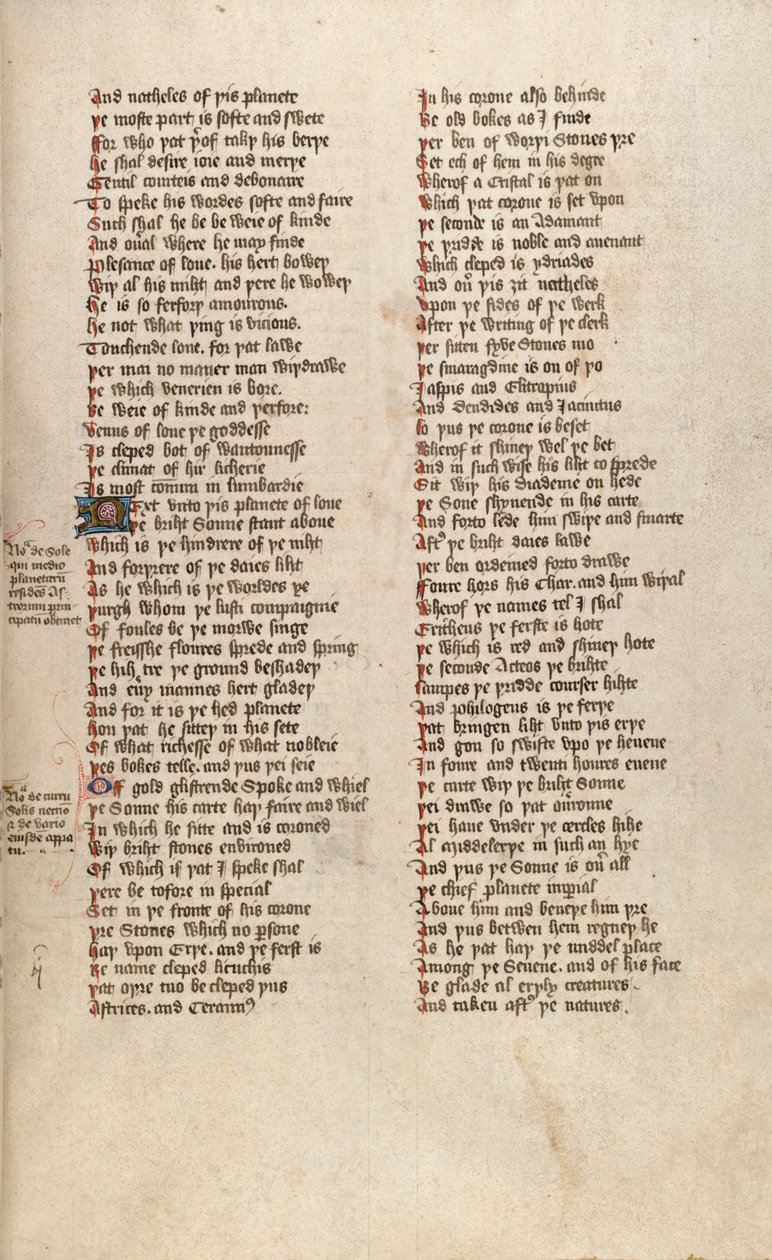 And natheles of þis planete
þe moste part is softe and swete
ffor who þat þ'of takþ his berþe
He shal desire ioie and merþe
Gentil courteis and debonaire
To speke his wordes softe and faire
Such shal he be be weie of kinde
And oũal where he may finde
Plesance of loue. his hert boweþ
Wiþ al his miht and þere he woweþ
He is so ferforþ amourous.
He not what þing is vicious.
Touchende loue. for þat lawe
þer mai no maner man wiþdrawe
þe which venerien is bore.
Be weie of kinde and þerfore:
Venus of loue þe goddesse
Is cleped bot of wantounesse
þe climat of hir licherie
Is most comũn in lumbardie
Next vnto þis planete of loue
þe briht Sonne stant aboue
Which is þe hindrere of þe niht
And forþrere of þe daies liht
As he which is þe worldes ÿe
þurgh whom þe lusti compaignie
Of foules be þe morwe singe
þe freisshe floures sprede and spring
þe hih tre þe ground beshadeþ
And eũy mannes hert gladeþ
And for it is þe hed planete
Hou þat he sitteþ in his sete
Of what richesse of what nobleie
þes bokes telle. and þus þei seie
Off gold glistrende Spoke and whiel
þe Sonne his carte haþ faire and wiel
In which he sitte and is coroned
Wiþ briht stones environed
Of which if þat I speke shal
þere be tofore in special
Set in þe fronte of his corone
þre Stones which no psone
Haþ vpon Erþe. and þe ferst is
Be name cleped licuchis
þat oþre tuo be cleped þus
Astrices. and Ceraun9
Noa de Sole
qui medio
planetarũ
residẽs As-
trorum prin-
cipatũ obtinet
Noa de curru
Solis necnõ
& de vario
eiusdẽ appa
tu.
In his corone also behinde
Be old bokes as I finde
þer ben of worþi Stones þre
Set ech of hem in his degre
Wherof a Cristal is þat on
Which þat corone is set vpon
þe seconde is an Adamant
þe þridde is noble and auenant
Which cleped is ydriades
And oũ þis ȝit natheles
Vpon þe sides of þe werk
After þe writing of þe clerk
þer sitten fyue Stones mo
þe smaragdine is on of þo
Iaspis and Elitropius
And Dendides and Iacinctus
Lo þus þe corone is beset
Wherof it shineþ wel þe bet
And in such wise his liht to sprede
Sit wiþ his diademe on hede
þe Sone shynende in his carte
And forto lede him swiþe and smarte
Aft' þe briht daies lawe
þer ben ordeined forto drawe
ffoure hors his Char. and him wiþal
Wherof þe names tel I shal
Eritheus þe ferste is hote
þe which is red and shineþ hote
þe seconde Acteos þe brihte
Lampes þe þridde courser hihte
And philogeus is þe ferþe
þat bringen liht vnto þis erþe
And gon so swifte vpo þe heuene
In foure and twenti houres euene
þe carte wiþ þe briht Sonne
þei drawe so þat oũronne
þei haue vnder þe cercles hihe
Al Middelerþe in such an hye
And þus þe Sonne is oũ all
þe chief planete inpial
Aboue him and beneþe him þre
And þus betwen hem regneþ he
As he þat haþ þe middel place
Among þe Seuene. and of his face
Be glade al erþly creatures
And taken aft' þe natures.